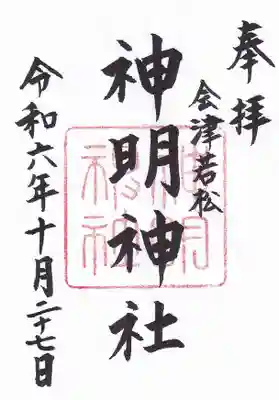 奉拝
会津若松
神明神社
令和六年十月二十七日